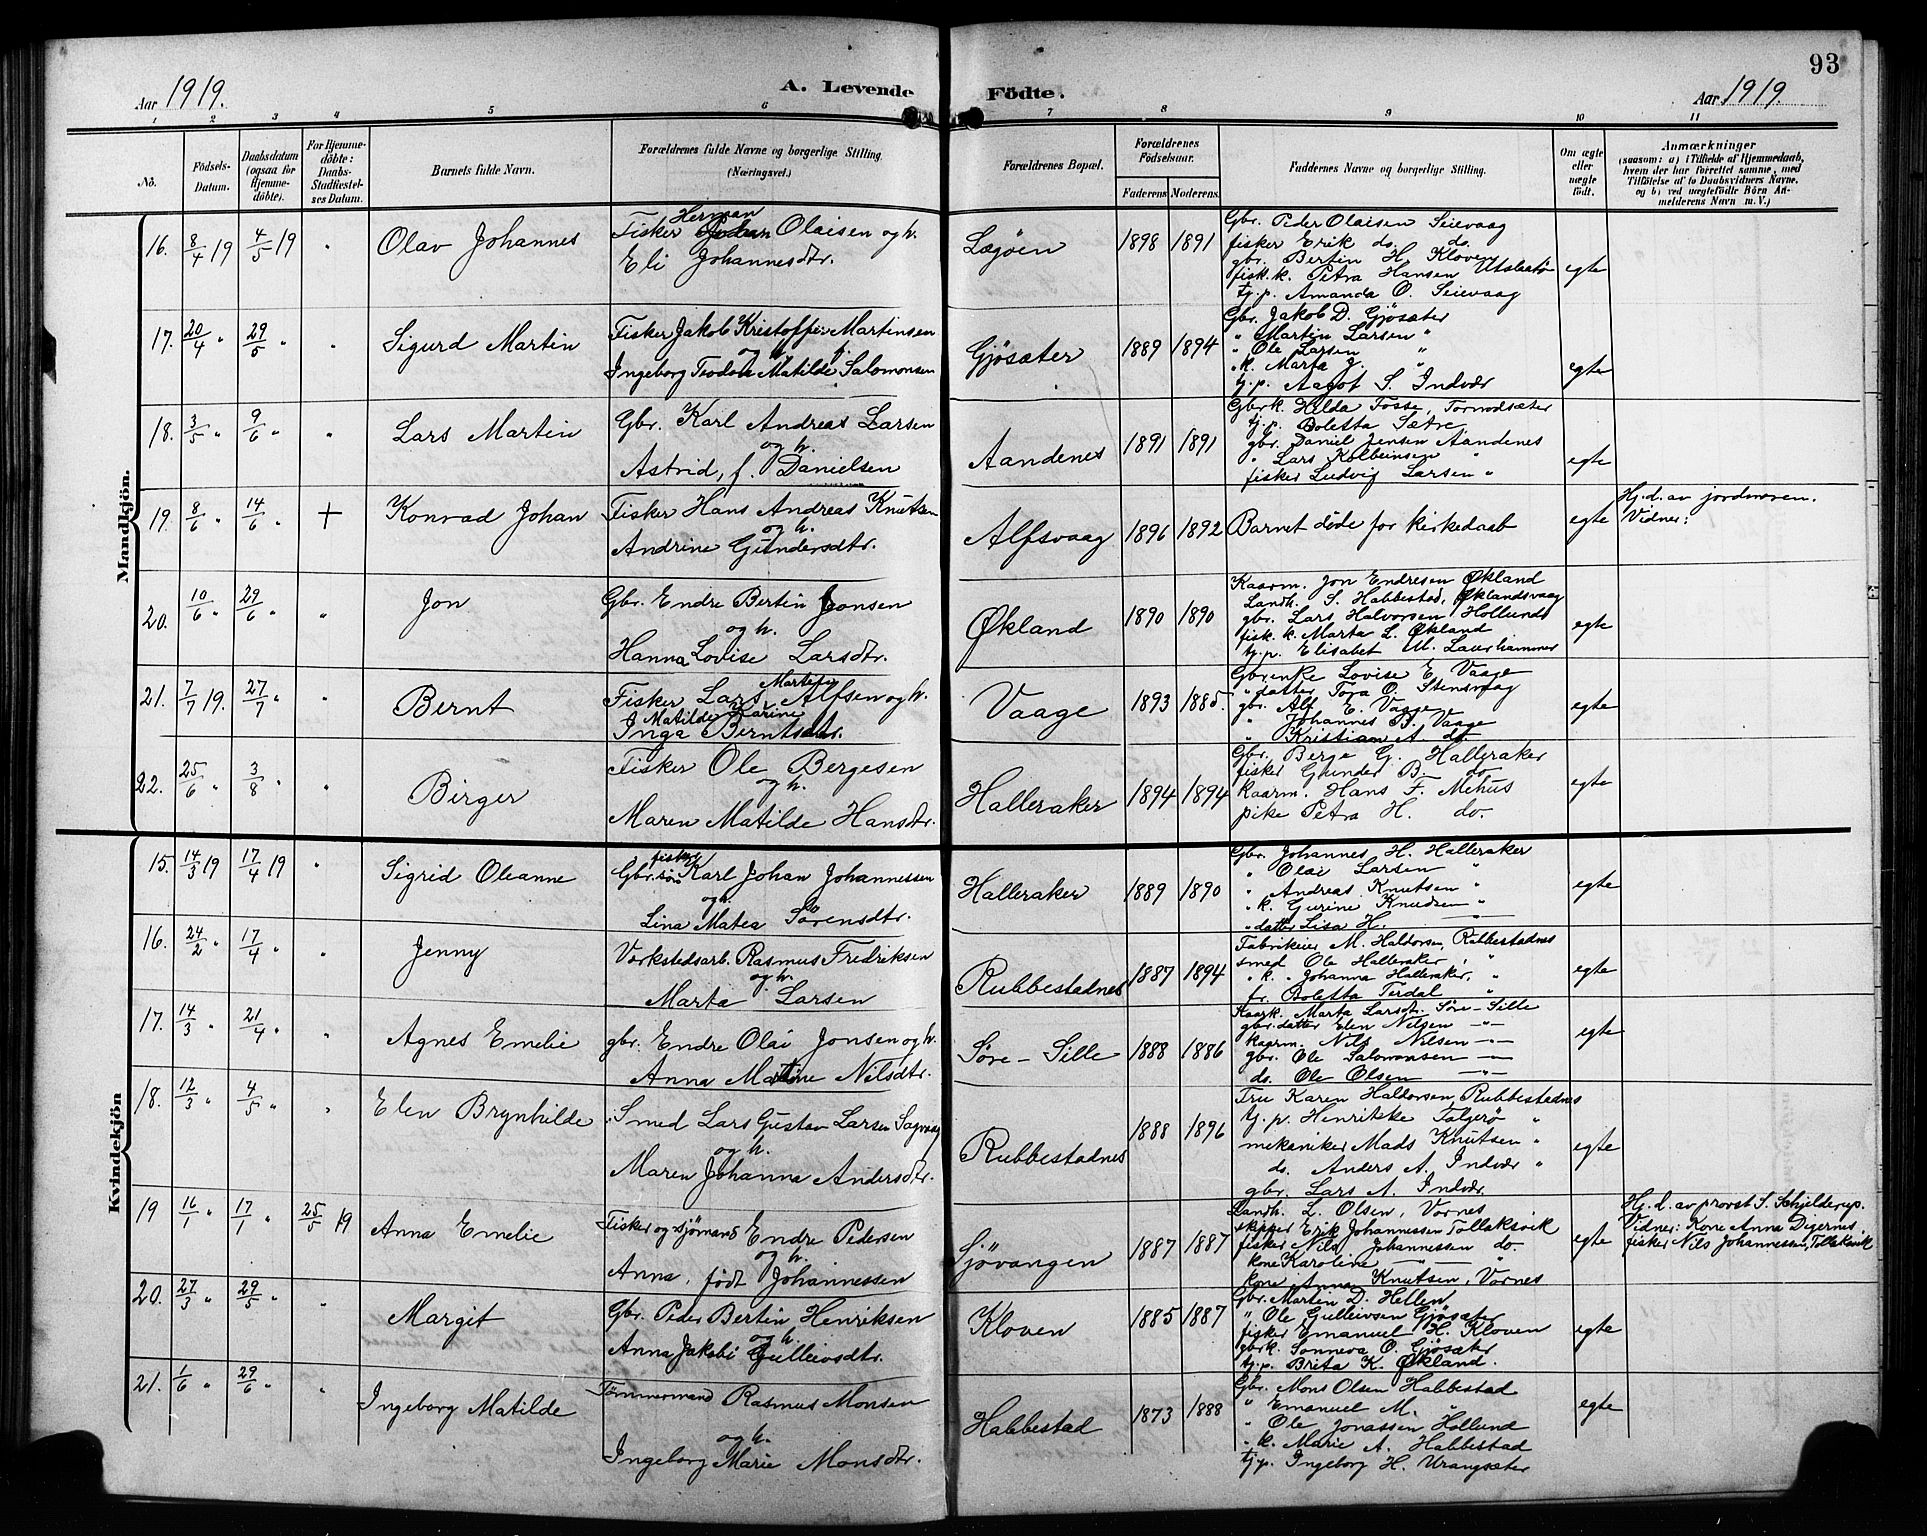 93
Aar 1919.
A. Levende
Födte.
Aar 1919.
1 2 3 4 5 6 7 8 9 10 11
No.
Födsels-
Datum.
Daabsdatum
(ogsaa for
Hjemme-
döbte).
For Hjemme-
döbte:
Daabs-
Stadfæstel-
ses Datum.
Barnets fulde Navn.
Forældrenes fulde Navne og borgerlige Stilling.
(Næringsvei.)
Forældrenes Bopæl.
Forældrenes
Födselsaar.
Faderens. Moderens.
Faddernes Navne og borgerlige Stilling.
Om ægte
eller
uægte
födt.
Anmærkninger
(saasom: a) i Tilfælde af Hjemmedaab,
hvem der har forrettet samme, med
Tilföielse af to Daabsvidners Navne,
og b) ved uægtefödte Börn An-
melderens Navn m. V.)
Mandkjön.
16. 8/4 19 4/5 19 " Olav Johannes
Herman
Fisker Olaisen og h.
Eli Johannesdtr.
Lægöen 1898 1891
Gbr. Peder Olaisen Seievaag
fisker Erik do. do.
gbr. Bertin H. Kloven
fisk.k. Petra Hansen Utslettö
tj.p. Amanda O. Seievaag
egte
17. 20/4 " 29/5 " " Sigurd Martin
Fisker Jakob Kristoffer Martinsen
og h.
Ingeborg Teodora Matilde f. Salomonsen
Gjösæter 1889 1894
Gbr. Jakob D. Gjösæter
" Martin Larsen "
" Ole Larsen "
" k. Marta J. "
tj.p. Aagot S. Indvær
egte
18. 3/5 " 9/6 " " Lars Martin
Gbr. Karl Andreas Larsen
og h.
Astrid, f. Danielsen
Aandenes 1891 1891
Gbrk. Hilda Fosse, Tornodsæter
tj.p. Boletta Sætre
gbr. Daniel Jensen Aandenes
" Lars Kolbeinsen "
fisker Ludvig Larsen "
egte
19. 8/6 " 14/6 " + Konrad Johan
Fisker Hans Andreas Knutsen
og h.
Andrine Gundersdtr.
Alfsvaag 1896 1892
Barnet döde for kirkedaab
egte
Hj.d. av jordmoren.
Vidner:
20. 10/6 " 29/6 " " Jon
Gbr. Endre Bertin Jonsen
og h.
Hanna Lovise Larsdtr.
Økland 1890 1890
Kaarm. Jon Endresen Økland
Landh. S. Habbestad, Øklandsvaag
gbr. Lars Halvorsen Hollund
fisk.k. Marta L. Økland
tj.p. Elisabet M. Laurhammer
egte
21. 7/7 19. 27/7 " " Bernt
Martin
Fisker Lars Alfsen og h.
Matilde Karine
Inga Berntsdtr.
Vaage 1893 1885.
Gbrenke Lovise E. Vaage
" datter Tora O. Stensvaag
gbr. Alf E. Vaage
" Johannes B. Vaage
" Kristian A. do.
egte
22. 25/6 " 3/8 " " Birger
Fisker Ole Bergesen
og h.
Maren Matilde Hansdtr.
Halleraker 1894 1894
Gbr. Berge G. Halleraker
fisker Gunder B. do
kaarm. Hans F. Mehus
pike Petra H. do.
egte
Kvindekjön
15. 14/3 19 17/4 19 " Sigrid Oleanne
fisker
Gbr.sön Karl Johan Johannessen
og h.
Lina Matea Sörensdtr.
Halleraker 1889 1890
Gbr. Johannes H. Halleraker
" Olai Larsen "
" Andreas Knutsen "
" k. Gurine Knudsen "
" datter Lisa H. "
egte
16. 24/2 " 17/4 " " Jenny
Verkstedsarb. Rasmus Fredriksen
og h.
Marta Larsen
Rubbestadnes 1887 1894
Fabrikeier M. Haldorsen, Rubbestadnes
smed Ole Halleraker, "
" k. Johanna Halleraker, "
fr. Boletta Terdal "
egte
17. 14/3 " 21/4 " " Agnes Emelie
gbr. Endre Olai Jonsen og h.
Anna Martine Nilsdtr.
Söre-Sille 1888 1886
Kaark. Marta Larsdtr. Söre-Sille
gbr.datter Elen Nilsen -"-
kaarm. Nils Nilsen -"-
gbr. Ole Salomonsen -"-
do. Ole Olsen -"-
egte
18. 12/3 " 4/5 " " Elen Brynhilde
Smed Lars Gustav Larsen Sagvaag
og h.
Maren Johanna Andersdtr.
Rubbestadnes 1888 1896
Fru Karen Haldorsen, Rubbestadnes
tj.p. Henrikke Talgerö "
mekaniker Mads Knutsen "
do. Anders A. Indvær "
gbr. Lars A. Indvær.
egte
19 16/1 " 17/1 " 25/5 19 Anna Emelie
Fisker og sjömand Endre Pedersen
og h.
Anna, födt Johannessen
Sjövangen 1887 1887
Landh. L. Olsen, Vornes
skipper Erik Johannessen Tollaksvik
fisker Nils Johannessen do.
kone Karoline -"-
kone Anna Knutsen, Vornes
egte
Hj.d. av provst S. Schjelderup.
Vidner: Kone Anna Digernes,
fisker Nils Johannessen, Tollaksvik
20. 27/3 " 29/5 " " Margit
Gbr. Peder Bertin Henriksen
og h.
Anna Jakobi Gulleivsdtr.
Kloven 1885 1887
Gbr. Martin D. Hellen
" Ole Gulleivsen Gjösæter
fisker Emanuel H. Kloven
gbrk. Sonneva O. Gjösæter
tj.p. Brita K. Økland.
egte
21. 1/6 " 29/6 " " Ingeborg Matilde
Tömmermand Rasmus Monsen
og h.
Ingeborg Marie Monsdtr.
Habbestad 1873 1888
Gbr. Mons Olsen Habbestad
" Emanuel M. "
" Ole Jonassen Hollund
" k. Marie A. Habbestad
tj.p. Ingeborg H. Urangsæter
egte